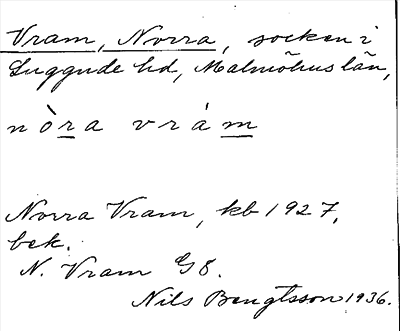 Vram, Norra, socken i
Luggude hd, Malmöhus län,
nòra vrám
Norra Vram, kb 1927,
bek.
N. Vram G8.
Nils Bengtsson 1936.